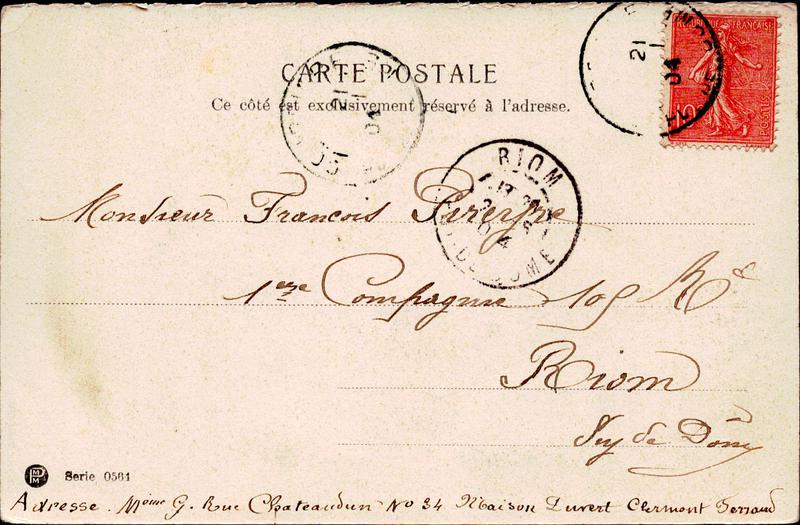 CARTE POSTALE
Ce côté est exclusivement réservé à l'adresse.
REPUBLIQUE FRANÇAISE
10
POSTES
21
1
04
21
1
04
RIOM
04
DE DOME
Monsieur Francois Pireyre
1ere Compagnie 105 Rt
Riom
Puy de Dôme
PMM
Serie 0564
Adresse. Môme G. Rue Chateaudun No 34 Maison Duvert Clermont Ferrand